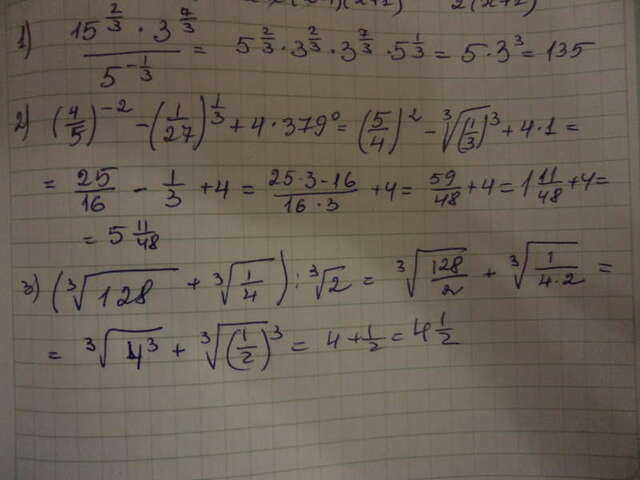 1) (15^(2/3) · 3^(7/3)) / 5^(-1/3) = 5^(2/3) · 3^(2/3) · 3^(7/3) · 5^(1/3) = 5 · 3^3 = 135
2) (4/5)^(-2) - (1/27)^(1/3) + 4 · 379^0 = (5/4)^2 - ∛(1/3)^3 + 4 · 1 =
= 25/16 - 1/3 + 4 = (25 · 3 - 16)/(16 · 3) + 4 = 59/48 + 4 = 1 11/48 + 4 =
= 5 11/48
3) (∛128 + ∛(1/4)) : ∛2 = ∛(128/2) + ∛(1/(4·2)) =
= ∛(4^3) + ∛((1/2)^3) = 4 + 1/2 = 4 1/2